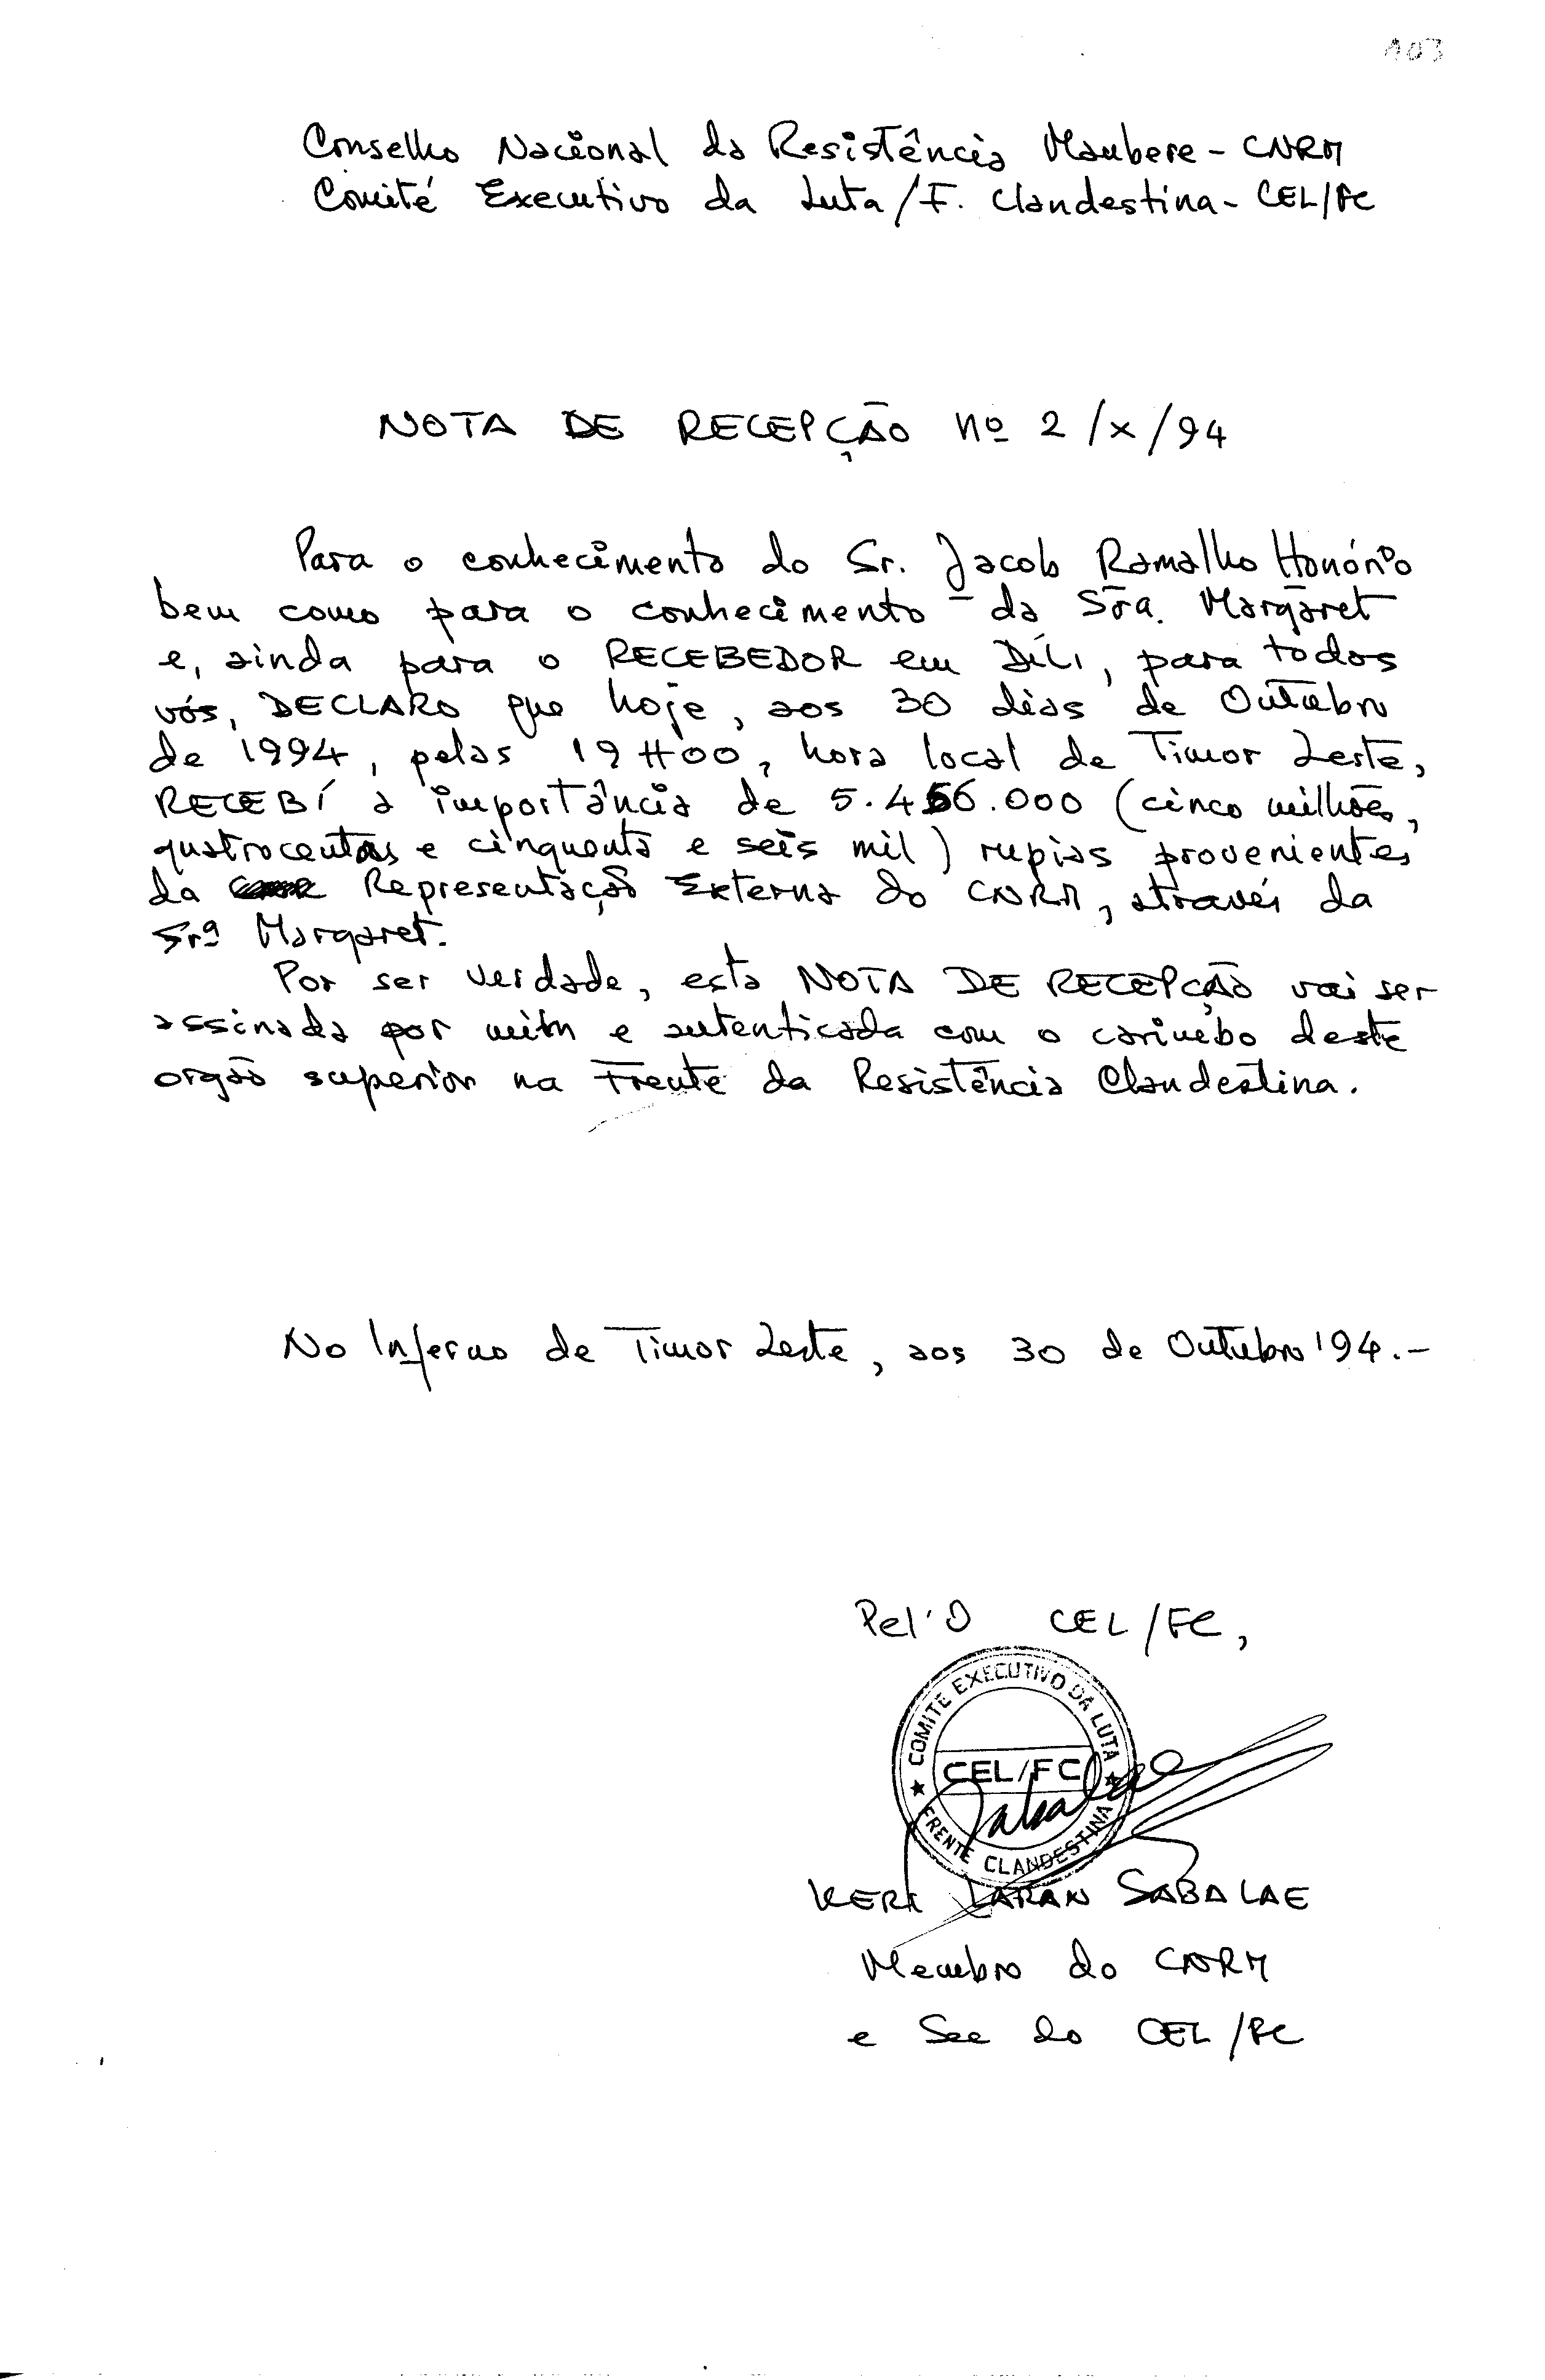 103
Conselho Nacional da Resistência Maubere - CNRM
Comité Executivo da Luta/F. Clandestina - CEL/FC
NOTA DE RECEPÇÃO Nº 2/X/94
Para o conhecimento do Sr. Jacob Ramalho Honório
bem como para o conhecimento da Sra. Margaret
e, ainda para o RECEBEDOR em DÍLI, para todos
vós, DECLARO que hoje, aos 30 dias de Outubro
de 1994, pelas 19H00, hora local de Timor Leste,
RECEBÍ a importância de 5.456.000 (cinco milhões,
quatrocentos e cinquenta e seis mil) rupias provenientes
da Representação Externa do CNRM, através da
Srª Margaret.
Por ser verdade, esta NOTA DE RECEPÇÃO vai ser
assinada por mim e autenticada com o carimbo deste
orgão superior na Frente da Resistência Clandestina.
No Inferno de Timor Leste, aos 30 de Outubro '94.-
Pel'O CEL/FC,
COMITE EXECUTIVO DA LUTA
CEL/FC
Sabalae
FRENTE CLANDESTINA
KERI LARAN SABALAE
Membro do CNRM
e Sec do CEL/FC